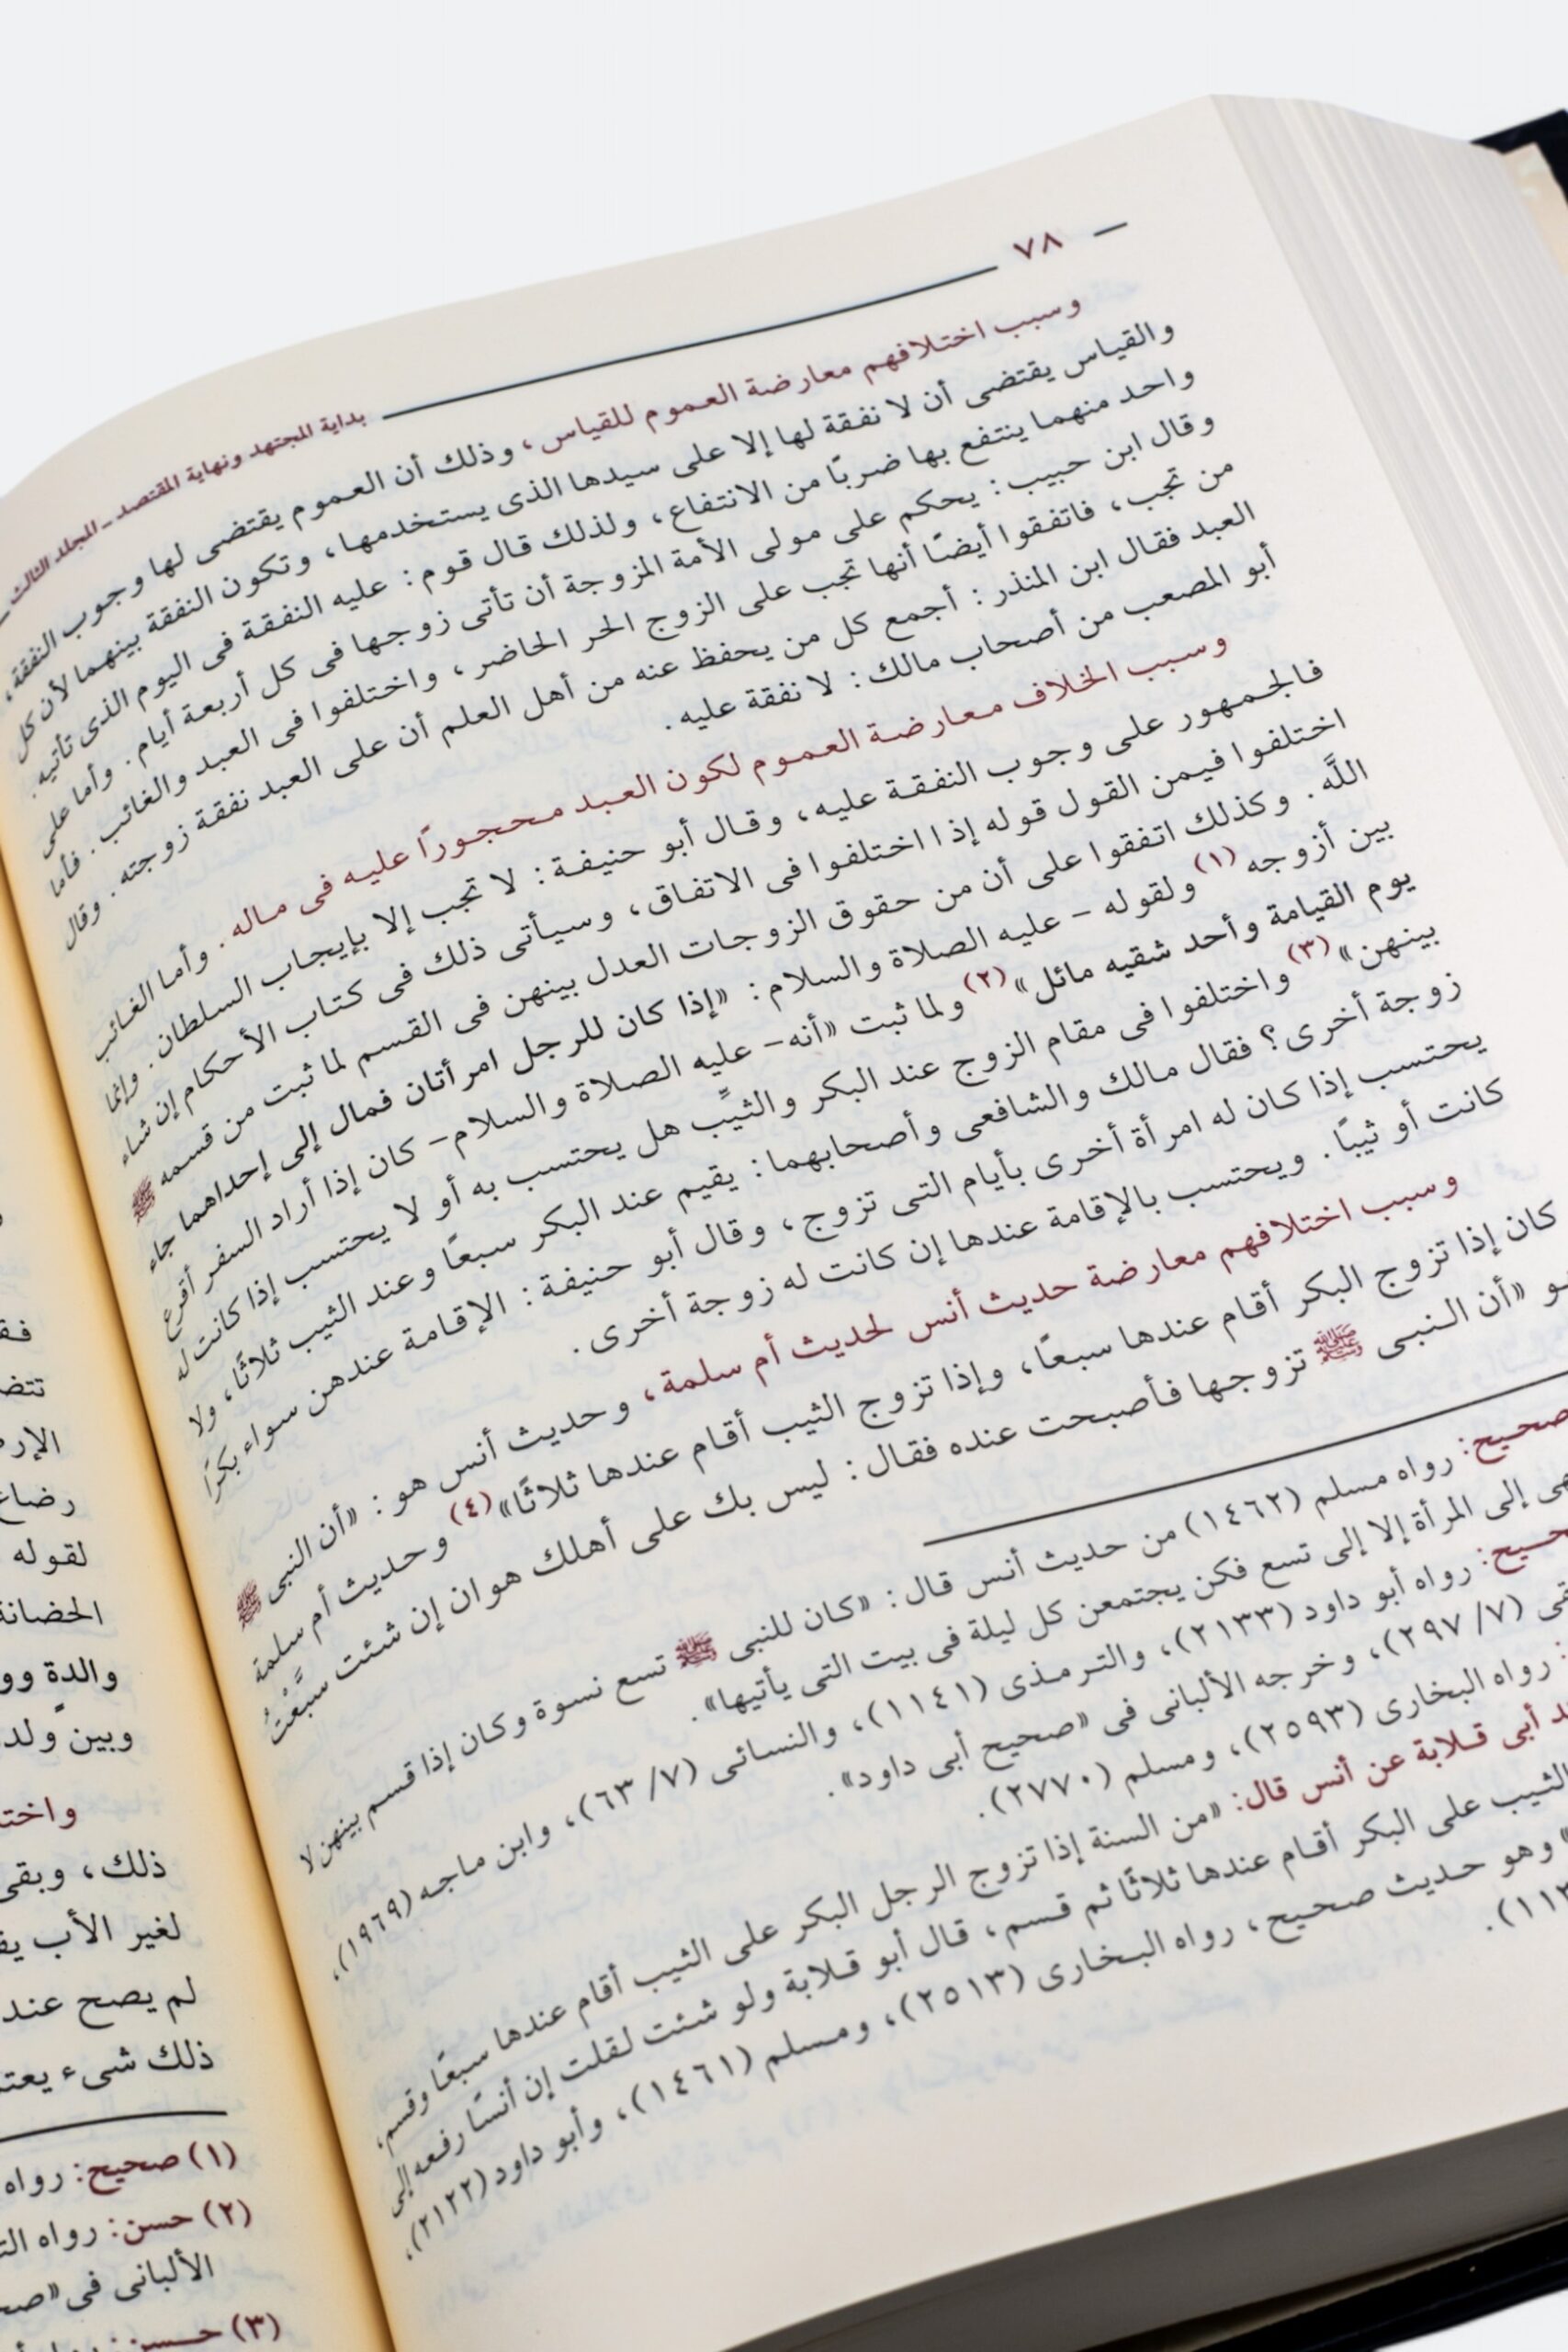 ٧٨
بداية المجتهد ونهاية المقتصد ـ المجلد الثالث
وسبب اختلافهم معارضة العموم للقياس، وذلك أن العموم يقتضى لها وجوب النفقة،
والقياس يقتضى أن لا نفقة لها إلا على سيدها الذى يستخدمها، وتكون النفقة بينهما لأن كل
واحد منهما ينتفع بها ضربًا من الانتفاع، ولذلك قال قوم: عليه النفقة فى اليوم الذى تأتيه.
وقال ابن حبيب: يحكم على مولى الأمة المزوجة أن تأتى زوجها فى كل أربعة أيام. وأما على
من تجب، فاتفقوا أيضًا أنها تجب على الزوج الحر الحاضر، واختلفوا فى العبد والغائب. فأما
العبد فقال ابن المنذر: أجمع كل من يحفظ عنه من أهل العلم أن على العبد نفقة زوجته. وقال
أبو المصعب من أصحاب مالك: لا نفقة عليه.
وسبب الخلاف معارضة العموم لكون العبد محجورًا عليه فى ماله. وأما الغائب
فالجمهور على وجوب النفقة عليه، وقال أبو حنيفة: لا تجب إلا بإيجاب السلطان. وإنما
اختلفوا فيمن القول قوله إذا اختلفوا فى الاتفاق، وسيأتى ذلك فى كتاب الأحكام إن شاء
اللَّه. وكذلك اتفقوا على أن من حقوق الزوجات العدل بينهن فى القسم لما ثبت من قسمه ﷺ
بين أزوجه (١) ولقوله - عليه الصلاة والسلام: «إذا كان للرجل امرأتان فمال إلى إحداهما جاء
يوم القيامة وأحد شقيه مائل» (٢) ولما ثبت «أنه- عليه الصلاة والسلام- كان إذا أراد السفر أقرع
بينهن» (٣) واختلفوا فى مقام الزوج عند البكر والثيِّب هل يحتسب به أو لا يحتسب إذا كانت له
زوجة أخرى؟ فقال مالك والشافعى وأصحابهما: يقيم عند البكر سبعًا وعند الثيب ثلاثًا، ولا
يحتسب إذا كان له امرأة أخرى بأيام التى تزوج، وقال أبو حنيفة: الإقامة عندهن سواء بكرًا
كانت أو ثيبًا. ويحتسب بالإقامة عندها إن كانت له زوجة أخرى.
وسبب اختلافهم معارضة حديث أنس لحديث أم سلمة، وحديث أنس هو: «أن النبى ﷺ
كان إذا تزوج البكر أقام عندها سبعًا، وإذا تزوج الثيب أقام عندها ثلاثًا» (٤) وحديث أم سلمة
«أن النبى ﷺ تزوجها فأصبحت عنده فقال: ليس بك على أهلك هوان إن شئت سبَّعْتُ
صحيح: رواه مسلم (١٤٦٢) من حديث أنس قال: «كان للنبى ﷺ تسع نسوة وكان إذا قسم بينهن لا
إلى المرأة إلا إلى تسع فكن يجتمعن كل ليلة فى بيت التى يأتيها».
رواه أبو داود (٢١٣٣)، والترمذى (١١٤١)، والنسائى (٧/ ٦٣)، وابن ماجه (١٩٦٩)،
(٧/ ٢٩٧)، وخرجه الألبانى فى «صحيح أبى داود».
رواه البخارى (٢٥٩٣)، ومسلم (٢٧٧٠).
أبى قلابة عن أنس قال: «من السنة إذا تزوج الرجل البكر على الثيب أقام عندها سبعًا وقسم،
الثيب على البكر أقام عندها ثلاثًا ثم قسم، قال أبو قلابة ولو شئت لقلت إن أنسًا رفعه إلى
وهو حديث صحيح، رواه البخارى (٢٥١٣)، ومسلم (١٤٦١)، وأبو داود (٢١٢٢)،
رضاع
لقوله
الحضانة
والدة
وبين ولد
ذلك، وبقى
لغير الأب
لم يصح عند
ذلك شىء
(١) صحيح: رواه
(٢) حسن: رواه
الألبانى فى
(٣) حسن: